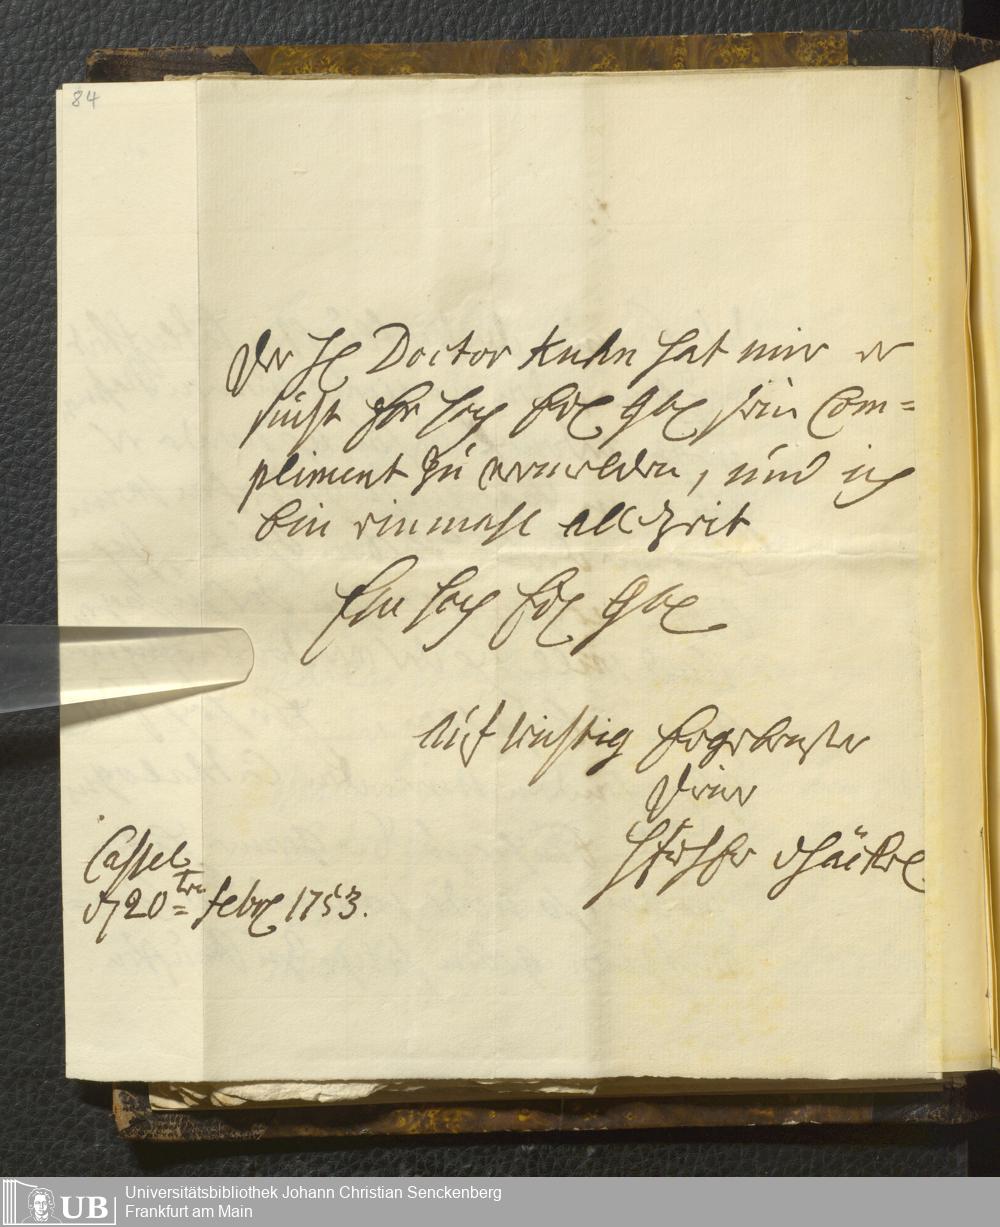 84
Der H Doctor Kuhn hat mir er
sucht Ihr hoch Edl Gbl sein Com=
pliment zu vermelden, und ich
bin einmahl allezeit
Ihr hoch Edl Gbl
Aufrichtig Ergebenster
Diener
Cassel
d 20ten febr 1753.
Universitätsbibliothek Johann Christian Senckenberg
Frankfurt am Main
UB